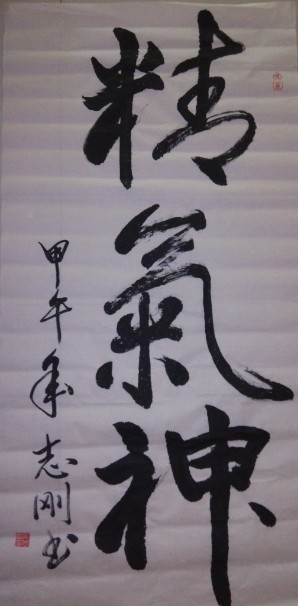 精氣神
甲午年志刚书